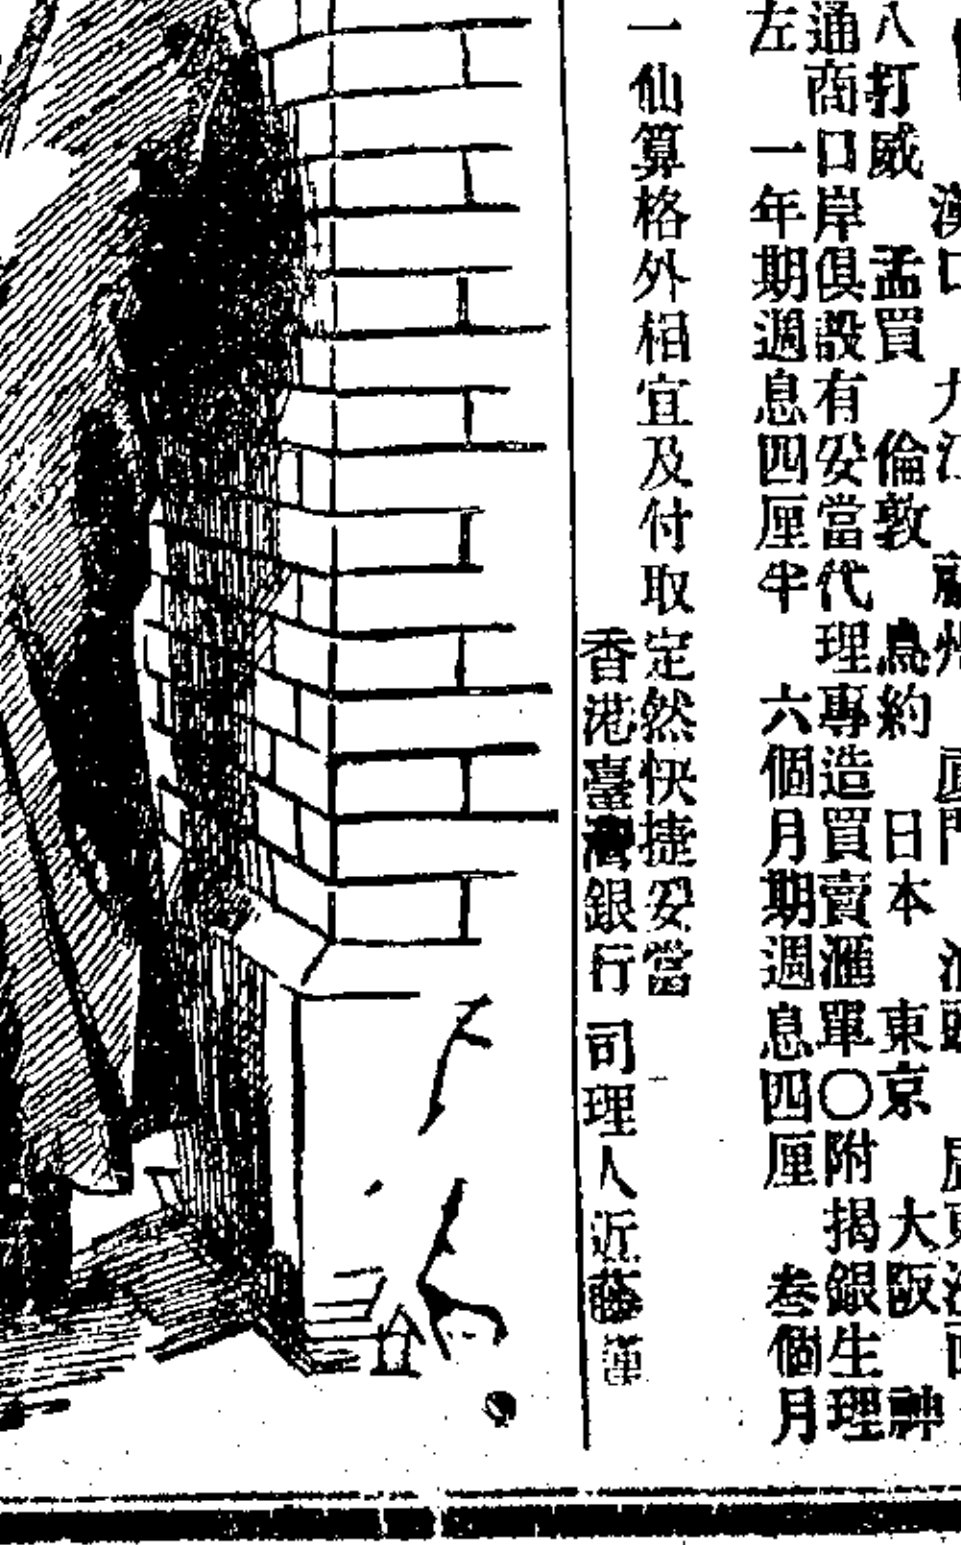 漢口 九江 蘇州 廈門 汕頭
八打威 孟買 倫敦 鳥約 日本 東京 大阪 神
通商口岸俱設有妥當代理專造買賣滙單〇附揭銀生理
左 一年期週息四厘半 六個月期週息四厘 叁個月
一仙算格外相宜及付取定然快捷妥當
香港臺灣銀行 司理人近藤